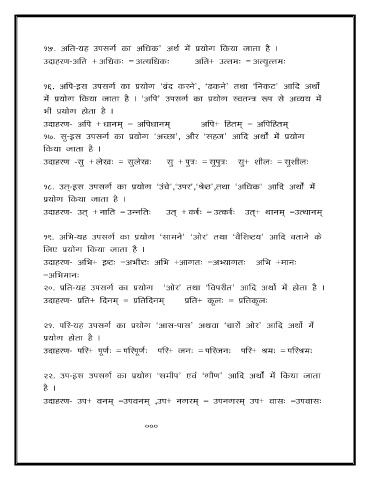 १५. अति-यह उपसर्ग का अधिक' अर्थ में प्रयोग किया जाता है ।
उदाहरण-अति + अधिकः = अत्यधिकः अति+ उत्तमः = अत्युत्तमः
१६. अपि-इस उपसर्ग का प्रयोग 'बंद करने', 'ढकने' तथा 'निकट' आदि अर्थों
में प्रयोग किया जाता है । 'अपि' उपसर्ग का प्रयोग स्वतन्त्र रूप से अव्यय में
भी प्रयोग होता है ।
उदाहरण- अपि + धानम् = अपिधानम् अपि+ हितम् = अपिहितम्
१७. सु-इस उपसर्ग का प्रयोग 'अच्छा', और 'सहज' आदि अर्थों में प्रयोग
किया जाता है ।
उदाहरण -सु + लेखः = सुलेखः सु + पुत्रः = सुपुत्रः सु+ शीलः = सुशीलः
१८. उत्-इस उपसर्ग का प्रयोग 'उंचे','उपर','श्रेष्ठ',तथा 'अधिक' आदि अर्थों में
प्रयोग किया जाता है ।
उदाहरण- उत् + नाति = उन्नतिः उत् + कर्षः = उत्कर्षः उत्+ थानम् =उत्थानम्
१९. अभि-यह उपसर्ग का प्रयोग 'सामने' 'ओर' तथा 'वैशिष्ट्य' आदि बताने के
लिए प्रयोग किया जाता है ।
उदाहरण- अभि+ इष्टः =अभीष्टः अभि +आगतः =अभ्यागतः अभि +मानः
=अभिमानः
२०. प्रति-यह उपसर्ग का प्रयोग 'ओर' तथा 'विपरीत' आदि अर्थो में होता है ।
उदाहरण- प्रति+ दिनम् = प्रतिदिनम् प्रति+ कूलः = प्रतिकूलः
२१. परि-यह उपसर्ग का प्रयोग 'आस-पास' अथवा 'चारों ओर' आदि अर्थो में
प्रयोग होता है ।
उदाहरण- परि+ पूर्णः = परिपूर्णः परि+ जनः = परिजनः परि+ श्रमः = परिश्रमः
२२. उप-इस उपसर्ग का प्रयोग 'समीप' एवं 'गौण' आदि अर्थों में किया जाता
है ।
उदाहरण- उप+ वनम् =उपवनम् ,उप+ नगरम् = उपनगरम् उप+ वासः =उपवासः
०००